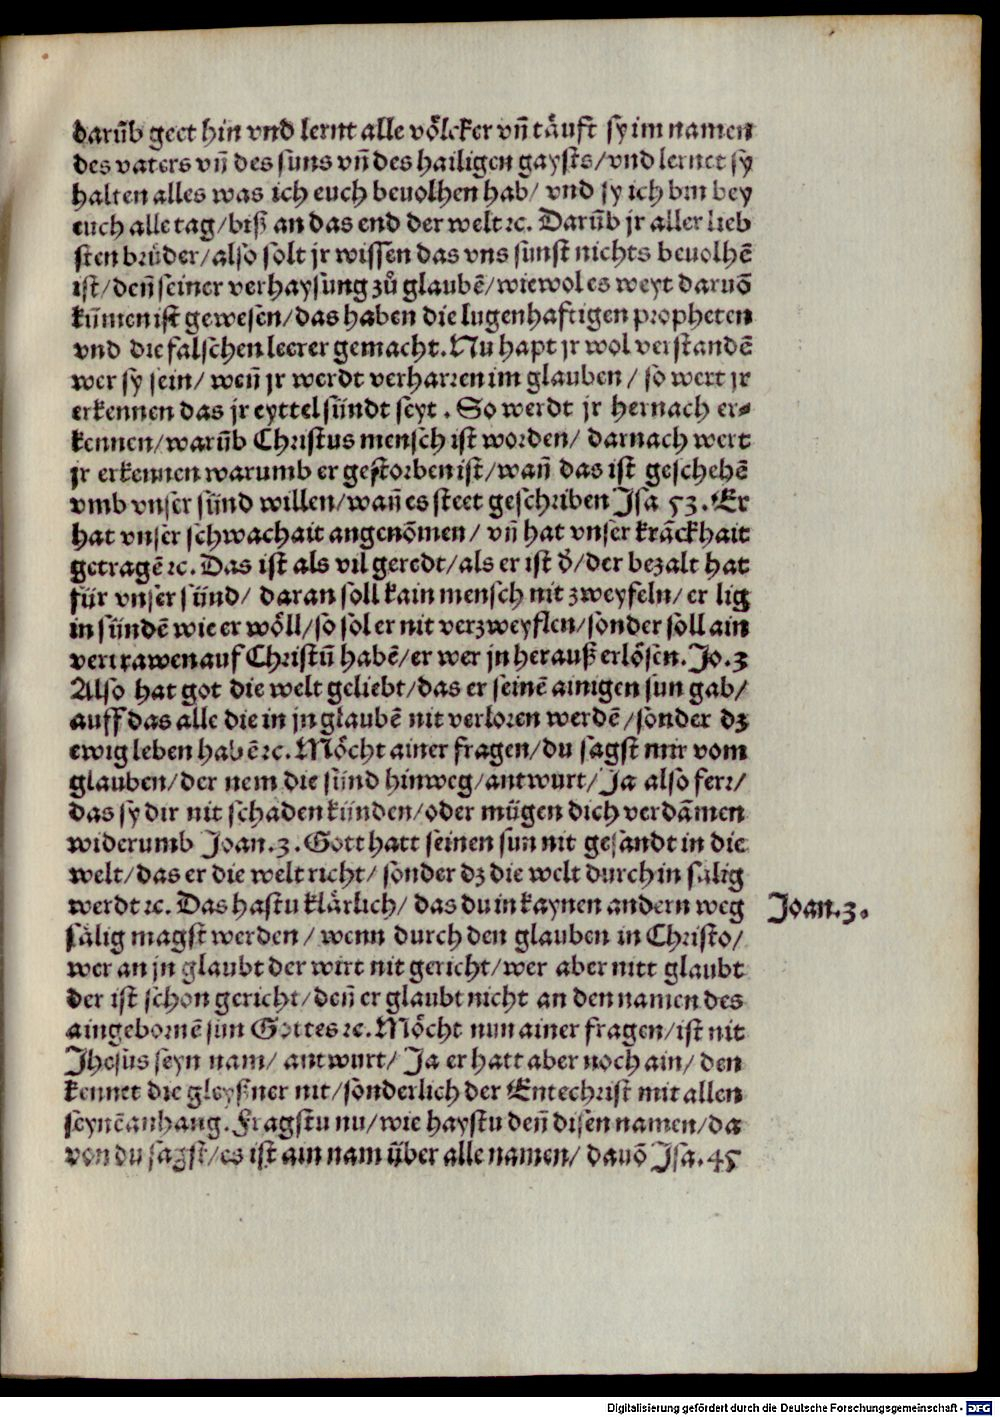 darum̄b geet hin vnd lernt alle völcker vn̄ täuft sy im namen
des vaters vn̄ des suns vn̄ des hailigen gaysts/vnd lernet sy
halten alles was ich euch beuolhen hab/ vnd sy ich bin bey
euch alle tag/biß an das end der welt ꝛc. Darūb jr aller lieb
sten brüder/also solt jr wissen das vns sunst nichts beuolhē
ist/den̄ seiner verhaysung zů glaubē/wiewol es weyt daruō
kūmen ist gewesen/das haben die lugenhaftigen propheten
vnd die falschen leerer gemacht. Nu hapt jr wol verstandē
wer sy sein/ wen̄ jr werdt verharren im glauben / so wert jr
erkennen das jr eyttel sündt seyt . So werdt jr hernach er⸗
kennen/warūb Christus mensch ist worden/ darnach wert
jr erkennen warumb er gestorben ist/wan̄ das ist geschehē
vmb vnser sünd willen/wan̄ es steet geschriben Jsa 53. Er
hat vnser schwachait angenōmen/ vn̄ hat vnser krāckhait
getragē ꝛc. Das ist als vil geredt/als er ist d̓/der bezalt hat
für vnser sünd/ daran soll kain mensch nit zweyfeln/ er lig
in sündē wie er wöll/so sol er nit verzweyflen/sonder soll ain
vertrawen auf Christū habē/er wer jn herauß erlösen. Jo. 3
Also hat got die welt geliebt/das er seinē ainigen sun gab/
auff das alle die in jn glaubē nit verloren werdē/sonder dz
ewig leben habē ꝛc. Möcht ainer fragen/du sagst mir vom
glauben/der nem die sünd hinweg/antwurt/Ja also ferr/
das sy dir nit schaden künden/oder mügen dich verdāmen
widerumb Joan. 3. Gott hatt seinen sun nit gesandt in die
welt/das er die welt richt/ sonder dz die welt durch in sälig
werdt ꝛc. Das hastu klärlich/ das du in kaynen andern weg
sälig magst werden / wenn durch den glauben in Christo/
wer an jn glaubt der wirt nit gericht/wer aber nitt glaubt
der ist schon gericht/den̄ er glaubt nicht an den namen des
aingebornē sun Gottes ꝛc. Möcht nun ainer fragen/ist nit
Jhesus seyn nam/ antwurt/ Ja er hatt aber noch ain/ den
kennet die gleyßner nit/sonderlich der Entechrist mit allen
seynē anhang. Fragstu nu/wie haystu den̄ disen namen/da
von du sagst/es ist ain nam über alle namen/ dauō Jsa. 45
Joan. 3.
Digitalisierung gefördert durch die Deutsche Forschungsgemeinschaft - DFG